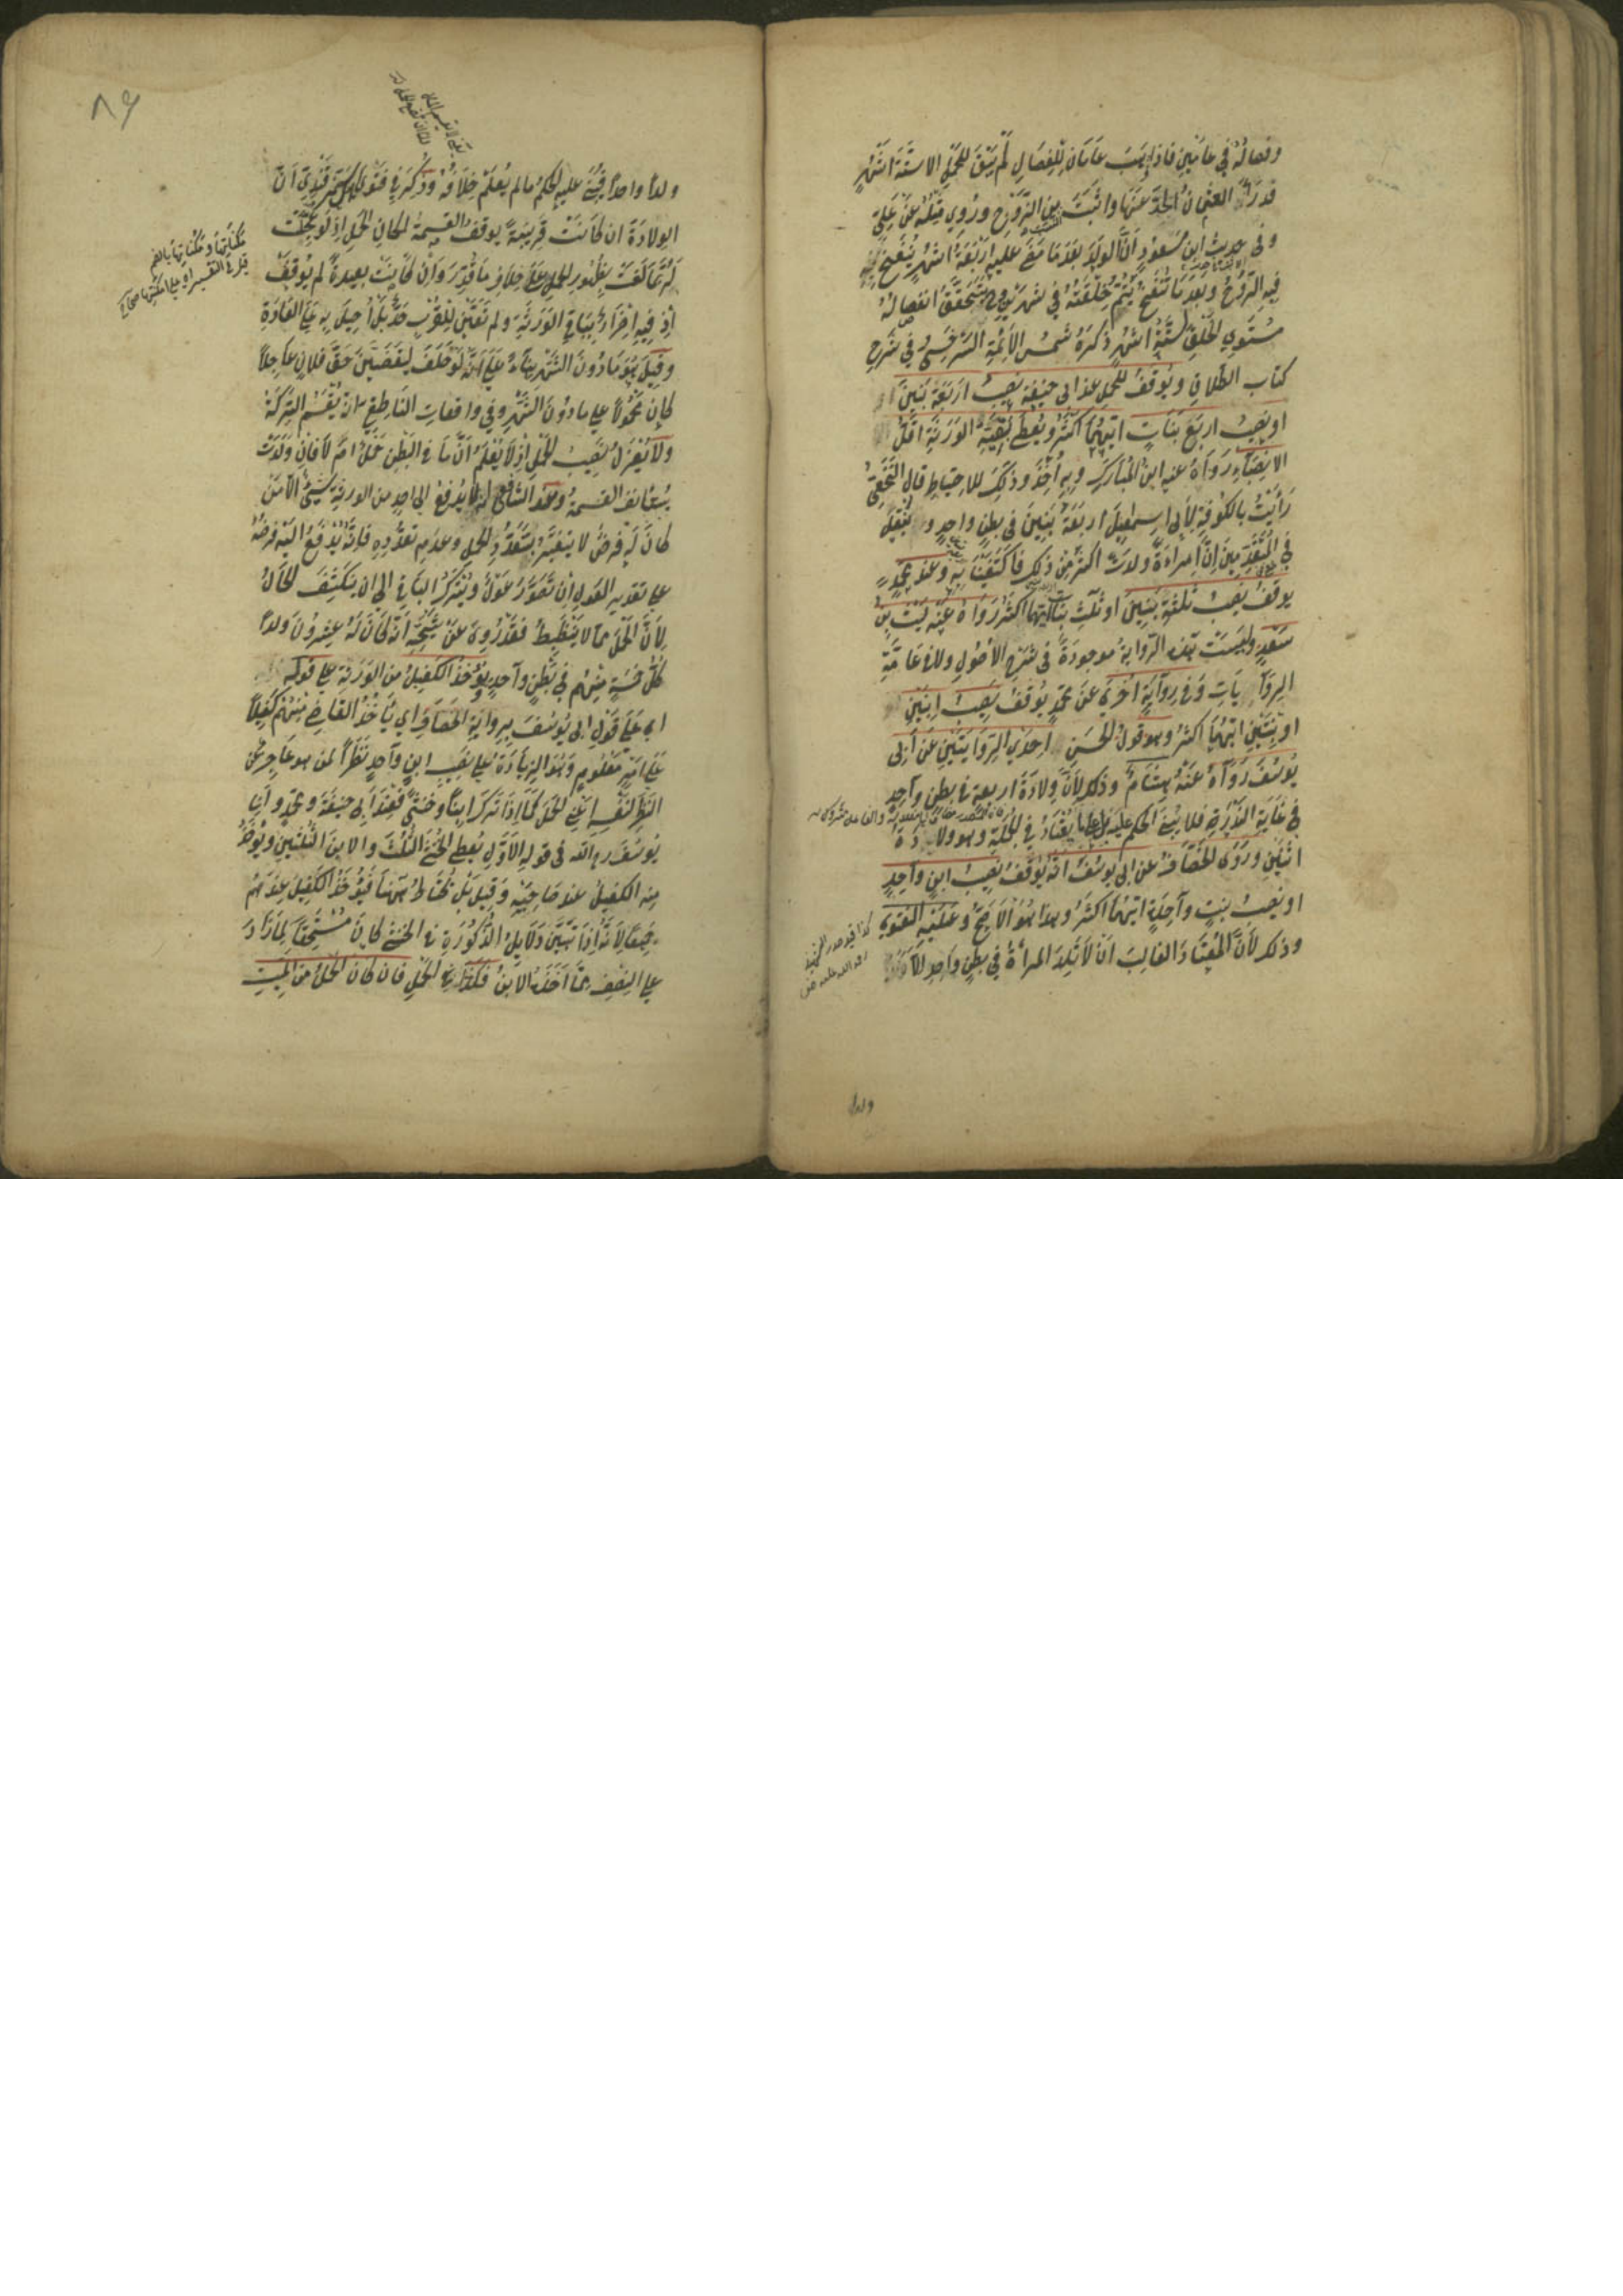 وفصاله في عامين فاذا ذهبت عامان للفصال لم يبق للحمل الا ستة اشهر
فدرأ العثمن الحد عنها واثبت النسب من الزوج وروي مثله عن علي
وفي حديث ابن مسعود ان الولد بعد ما مضى عليه اربعة اشهر ينفخ
فيه الروح وبعد ما تنفخ يتم خلقته في شهرين وح يتحقق انفصاله
مستوي الخلق لستة اشهر ذكره شمس الائمة السرخسي في شرح
كتاب الطلاق ويوقف للحمل عند ابي حنيفة نصيب اربعة بنين
او نصيب اربع بنات ايتهما اكثر ويعطى لبقية الورثة اقل
الانصباء رواه عنه ابن المبارك وبه اخذ وذلك للاحتياط قال النخعي
رأيت بالكوفة لابي اسمعيل اربعة بنين في بطن واحد ولم ينقل
في المتقدمين ان امراءة ولدت اكثر من ذلك فاكتفينا به وعند محمد
يوقف نصيب ثلثة بنين او ثلث بنات ايتهما اكثر رواه عنه ليث بن
سعد وليست هذه الرواية موجودة في شرح الاصول ولا في عامة
الروايات وفي رواية اخرى عن محمد يوقف نصيب ابنين
او بنتين ايتهما اكثر وهو قول الحسن احدي الروايتين عن ابي
يوسف رواه عنه هشام وذلك لان ولادة اربعة في بطن واحد
في غاية الندرة فلا يبنى الحكم عليه بل على ما يعتاد في الجملة وهو ولادة
اثنين وروى الخصاف عن ابي يوسف انه يوقف نصيب ابن واحد
او نصيب بنت واحدة ايتهما اكثر وهذا هو الاصح وعليه الفتوى
وذلك لان المعتاد الغالب ان لا تلد المرأة في بطن واحد الا
ولدا
٨٩
ولدا واحدا فيبنى عليه الحكم ما لم يعلم خلافه وذكر في فتوى اهل سمرقند ان
الولادة ان كانت قريبة يوقف القسمة لمكان الحمل اذ لو عجلت
لربما لغت بظهور الحمل على خلاف ما قدر وان كانت بعيدة لم يوقف
اذ فيه اضرار بباقي الورثة ولم تعين للقرب حد بل احيل به على العادة
وقيل هو ما دون الشهر بناء على انه لو حلف ليقضين حق فلان عاجلا
كان محمولا على ما دون الشهر وفي واقعات الناطفي انه يقسم التركة
ولا يعزل نصيب الحمل اذ لا يعلم ان ما في البطن حمل ام لا فان ولدت
يستانف القسمة وعند الشافعي انه لا يدفع الى احد من الورثة شيئ الا من
كان له فرض لا يتغير بتعدد الحمل وعدم تعدده فانه يدفع اليه فرضه
على تقدير العول ان تصور عول ويترك الباقي الى ان ينكشف الحال
لان الحمل مما لا ينضبط فقد روي عن شيخه انه كان له عشرون ولدا
كل خمسة منهم في بطن واحد ويؤخذ الكفيل من الورثة على قوله
اي على قول ابي يوسف برواية الخصاف اي ياخذ القاضي منهم كفيلا
على امر معلوم وهو الزيادة على نصيب ابن واحد نظرا لمن هو عاجز عن
النظر لنفسه اعني الحمل كما اذا ترك ابنا وخنثى فعند ابي حنيفة ومحمد وابي
يوسف ره الله في قوله الاول يعطى الخنثى الثلث والابن الثلثين ويؤخذ
منه الكفيل عند صاحبيه وقيل بل يحتاط ههنا فيؤخذ الكفيل عندهم
جميعا لانه اذا تبين دلايل الذكورة في الخنثى كان مستحقا لما زاد
على النصف مما اخذه الابن فكذا في الحمل فان كان الحمل من الميت